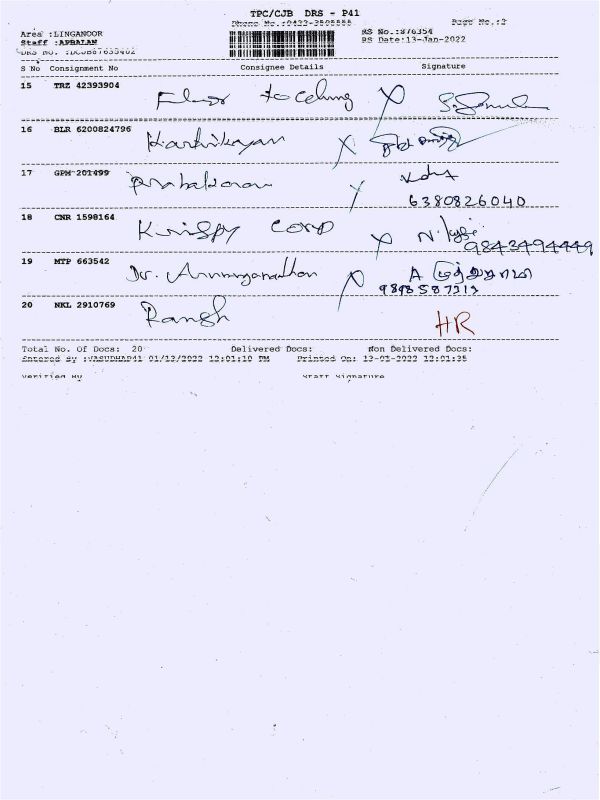 TPC/CJB DRS - P41
Page No.:2
Area :LINGANOOR
RS No.:876354
Staff :APBALAN
RS Date:13-Jan-2022
S No Consignment No Consignee Details Signature
15 TRZ 42393904
Floor to celing X
16 BLR 6200824796
Karthikeyan X
17 GPM 201499
Prabakaran X
6380826040
18 CNR 1598164
Krispy corp X
9843494449
19 MTP 663542
Dr. X A
20 NKL 2910769
HR
Total No. Of Docs: 20 Delivered Docs: Non Delivered Docs:
Entered By :VASUDHAP41 01/13/2022 12:01:10 PM Printed On: 13-01-2022 12:01:35
Verified By Staff Signature